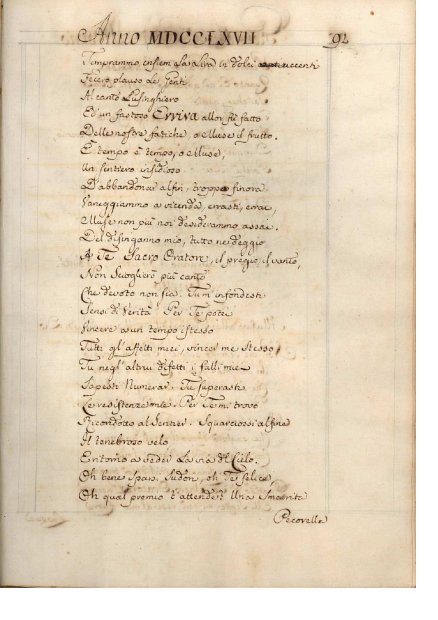 Anno MDCCLXVII 92
Temprammo insiem la Lira in dolci accenti
Fecero plauso le Genti
Al canto Lusinghiero
Ed un fastoso Evviva allor fu fatto
Delle nostre fatiche, o Muse il frutto.
È tempo è tempo, o Muse,
Un sentiero insidioso
D'abbandonar alfin, troppo finora
Vaneggiammo a vicenda, errasti, errai,
Muse non più noi desiderammo assai.
Del disinganno mio, tutto ne deggio
A Te Sacro Orator, il pregio, il vanto,
Non Scioglierò più canto
Che devoto non sia. Tu m'infondesti
Sensi di Verità. Per Te potei
Vincere a un tempo istesso
Tutti gl'affetti miei, vincer me Stesso
Tu negl'altrui difetti i falli miei
Sapesti Numerar. Tu superasti
Le resistenze mie. Per Te mi trovo
Ricondotto al Sentier. Squarciossi alfine
Il tenebroso velo
E ritorno a veder La via del Cielo.
Oh bene sparsi Sudori, oh Te felice,
Oh qual premio t'attende! Una Smarrita
Pecorella